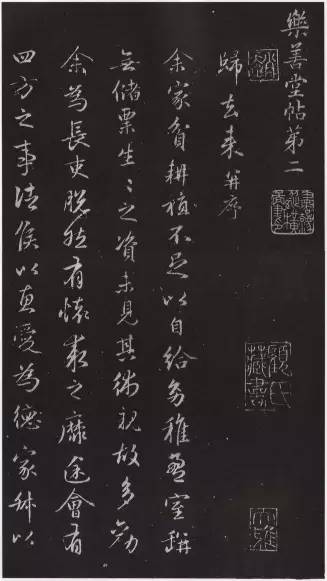 樂善堂帖第二
歸去来并序
余家貧耕植不足以自給幼稚盈室缾
無儲粟生〻之資未見其術親故多勸
余為長吏脱然有懷求之靡途會有
四方之事諸侯以惠愛為德家叔以
顧氏藏書